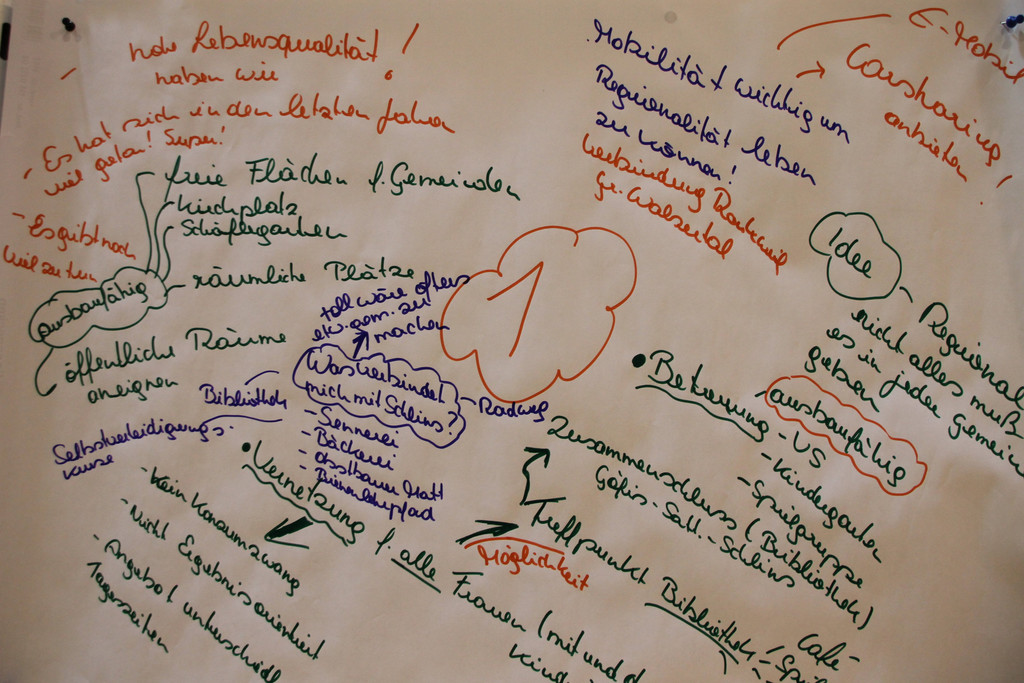 hohe Lebensqualität!
haben wir
- Es hat sich in den letzten Jahren
viel getan! Super!
- Es gibt noch
viel zu tun
freie Flächen f. Gemeinden
Kirchplatz
Schäflegarten
räumliche Plätze
ausbaufähig
öffentliche Räume
aneignen
toll wäre öfters
etw. gem. zu
machen
Was verbindet
mich mit Schlins?
- Radweg
- Sennerei
- Bäckerei
- Obstbauer Matt
- Bienenlehrpfad
Bibliothek
Selbstverteidigungs-
kurse
1
Mobilität wichtig um
Regionalität leben
zu können!
Verbindung Rankweil
Gr. Walsertal
E-Mobil
Carsharing
anbieten!
Idee
- Regional
nicht alles muß
es in jeder Gemein
geben
• Betreuung
ausbaufähig
- VS
- Kindergarten
- Spielgruppe
Zusammenschluss (Bibliothek)
Göfis - Satt. - Schlins
Treffpunkt Bibliothek
Café -
Möglichkeit
• Vernetzung f. alle Frauen (mit und
- kein Konsumzwang
- Nicht Ergebnisorientiert
- Angebot unterschiedl
Tageszeiten